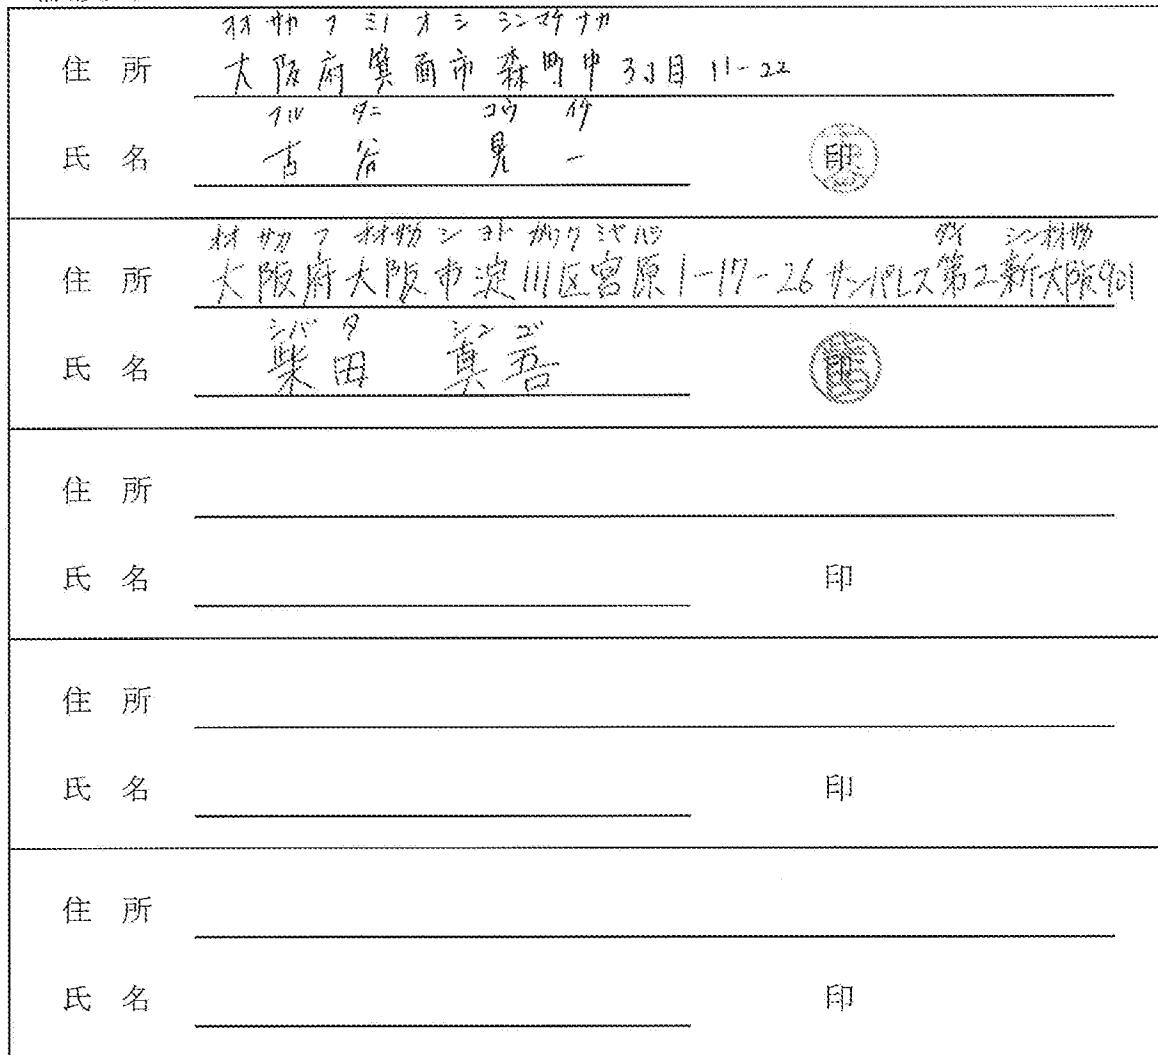 オオサカフミノオシシンマチナカ
住所 大阪府箕面市森町中3丁目11-22
フルタニ コウイチ
氏名 古谷 晃一 印
オオサカフオオサカシヨドガワクミヤハラ ダイ シンオオサカ
住所 大阪府大阪市淀川区宮原1-17-26サンパレス第2新大阪901
シバタ シンゴ
氏名 柴田 真吾 印
住所
氏名 印
住所
氏名 印
住所
氏名 印